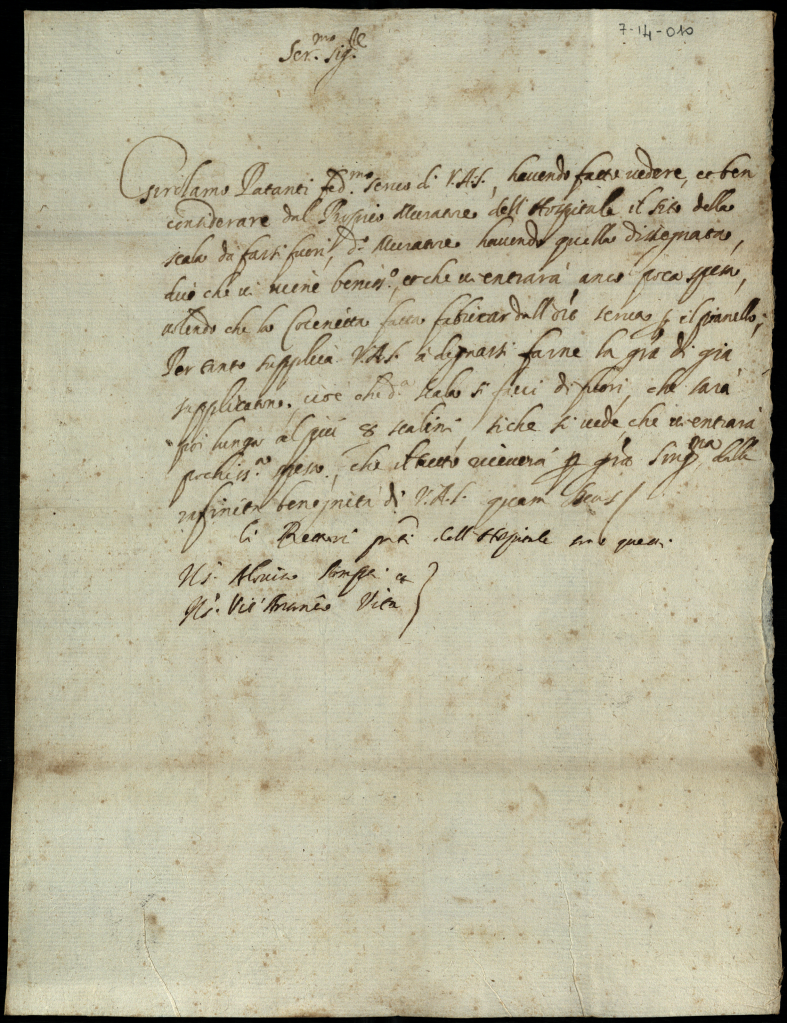 7-14-010
Ser.mo Sig.re
Girolamo Patanti fed.mo servo di V.A.S., havendo fatto vedere, et ben
considerare dal Proprio Muratore dell'Hospitale il sito della
scala da farsi fuori, d.o Muratore havendo quella dissegnata,
dice che vi viene beniss.o, et che vi entrarà anco poca spesa,
che la fatta fabricar dall' il pianello,
Per tanto supplica V.A.S. à degnarsi farne la gra di già
supplicatone, cioè che d.a scala si facci di fuori, che sarà
poi lunga al più 8 scalini, siche si vede che vi entrarà
pochiss.a spesa, che il tutto riceverà p gra sing.ma dalla
infinita benignità di V.A.S. quam Deus /
li Rettori dell'Hospitale
Vita